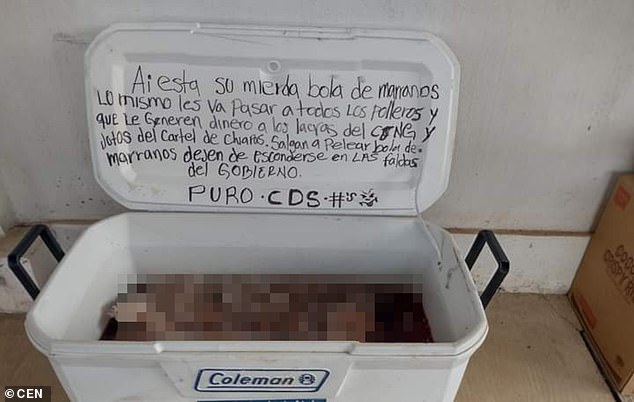 Ai esta su mierda bola de marranos
Lo mismo les va Pasar a todos Los Polleros y
que Le Generen dinero a las lacras del CJNG y
Jotos del Cartel de Chiapas. Salgan a Pelear bola de
marranos dejen de Esconderse en LAS faldas
del GOBIERNO.
PURO · CDS · #
Coleman
CEN